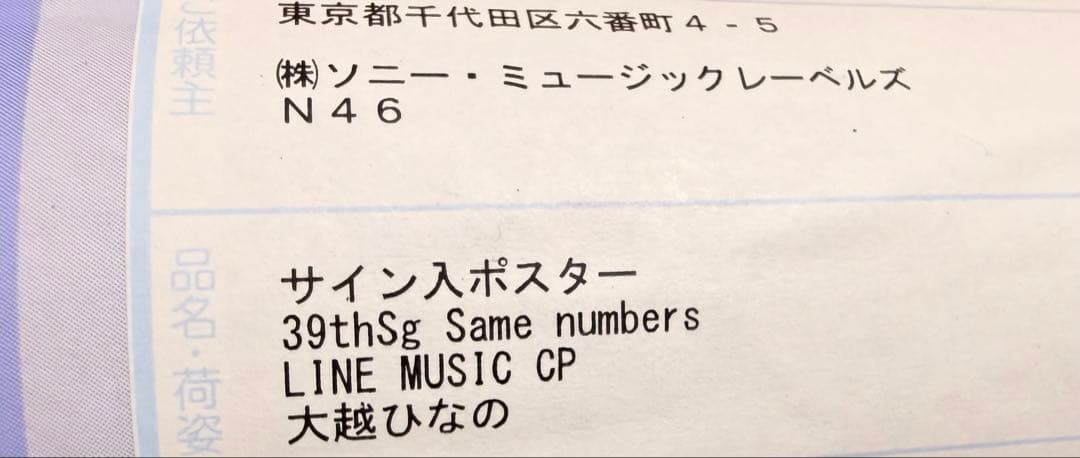 ご依頼主
東京都千代田区六番町4-5
㈱ソニー・ミュージックレーベルズ
N46
品名・荷姿
サイン入ポスター
39thSg Same numbers
LINE MUSIC CP
大越ひなの